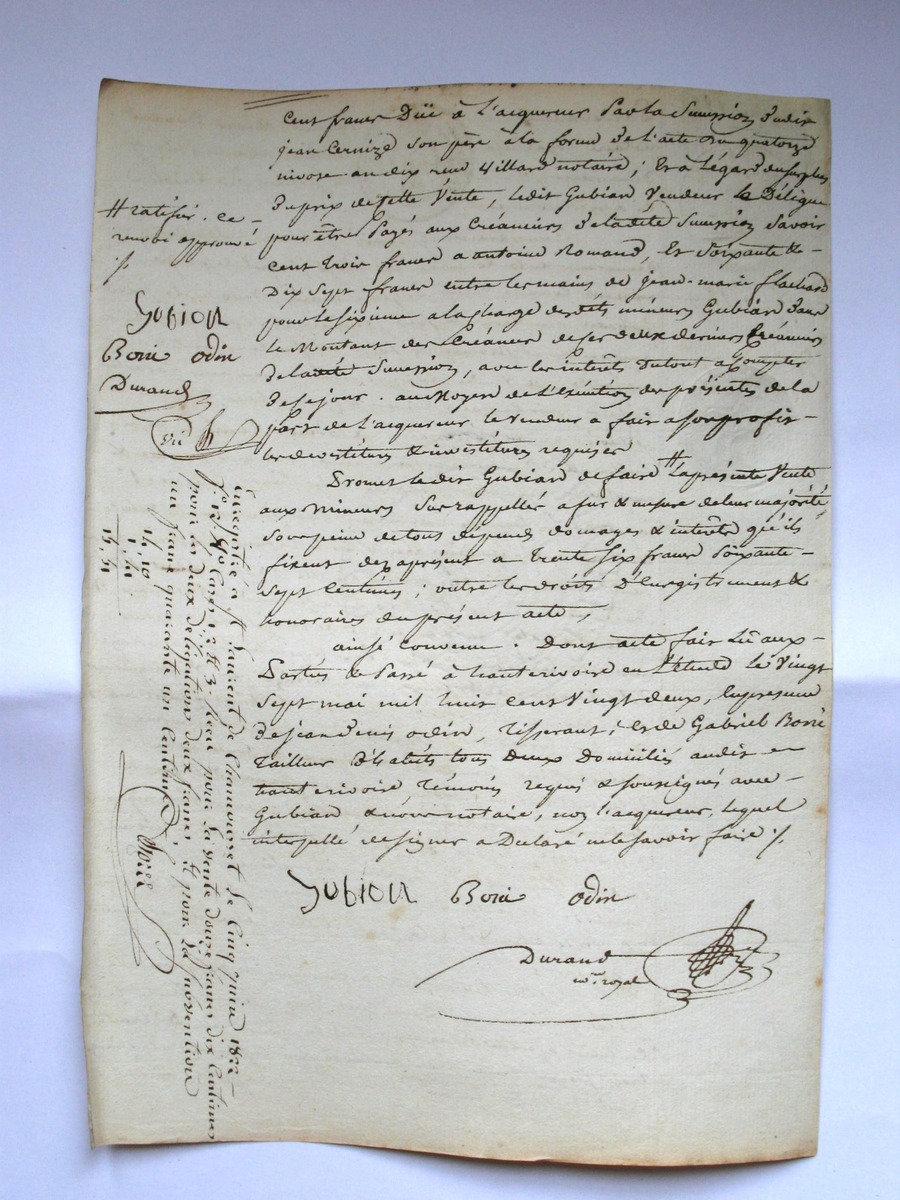 cent francs Düe à l'acquereur Par la Sucession dudit
jean Cernize son père à la forme de l'acte du quatorze
nivose an dix reçu Villard notaire ; Et à légard du surplus
Du prix de cette Vente, ledit Gubian Vendeur le Délègue
pour être Payés aux Créanciers de ladite Sucession Savoir
Cent trois francs a antoine Romand, Et Soixante &
Dix Sept francs entre les mains de jean-marie flachard
pour le sixieme a la charge desdits mineurs Gubian Dans
le Montant des Créances de ses deux derniers Créanciers
De ladite Sucession, avec les interêts Du tout a Compter
De ce jour. au Moyen de L'exécution des présentes de la
part de l'acquereur le vendeur a fait a son profit
les devestitures & investitures requises
Promet ledit Gubian de faire # la présente Vente
aux mineurs Sus rappellés a fur & mesure de leur majorité,
sous peine de tous depends domages & interêts qu'ils
fixent dez aprésent a Trente Six francs Soixante-
Sept Centimes ; outre les droits d'Enregistrement &
honoraires du présent acte,
ainsi convenu. Dont acte fait Lû aux
Parties & Passé à hauterivoire en L'étude le Vingt
Sept mai mil huit cent Vingt deux, En présence
De jean Denis odin, Tisserant ; Et de Gabriel Borie
Tailleur D'habits tous Deux Domiciliés audit
hauterivoire, Témoins requis & soussignés avec
Gubian & nous notaire, non l'acquereur, lequel
interpellé de signer a Déclaré ne le savoir faire ./.
Gubian Borie odin
Durand
nre royal
# ratifier. ce
renvoi approuvé
./.
Gubian
Borie odin
Durand
Enregistré à St Laurent de Chamousset le Cinq juin 1822
pour la vente douze francs dix Centimes
pour les deux delegations deux francs Et pour la
un franc quarante un Centimes
14, 10
1, 41
15, 51